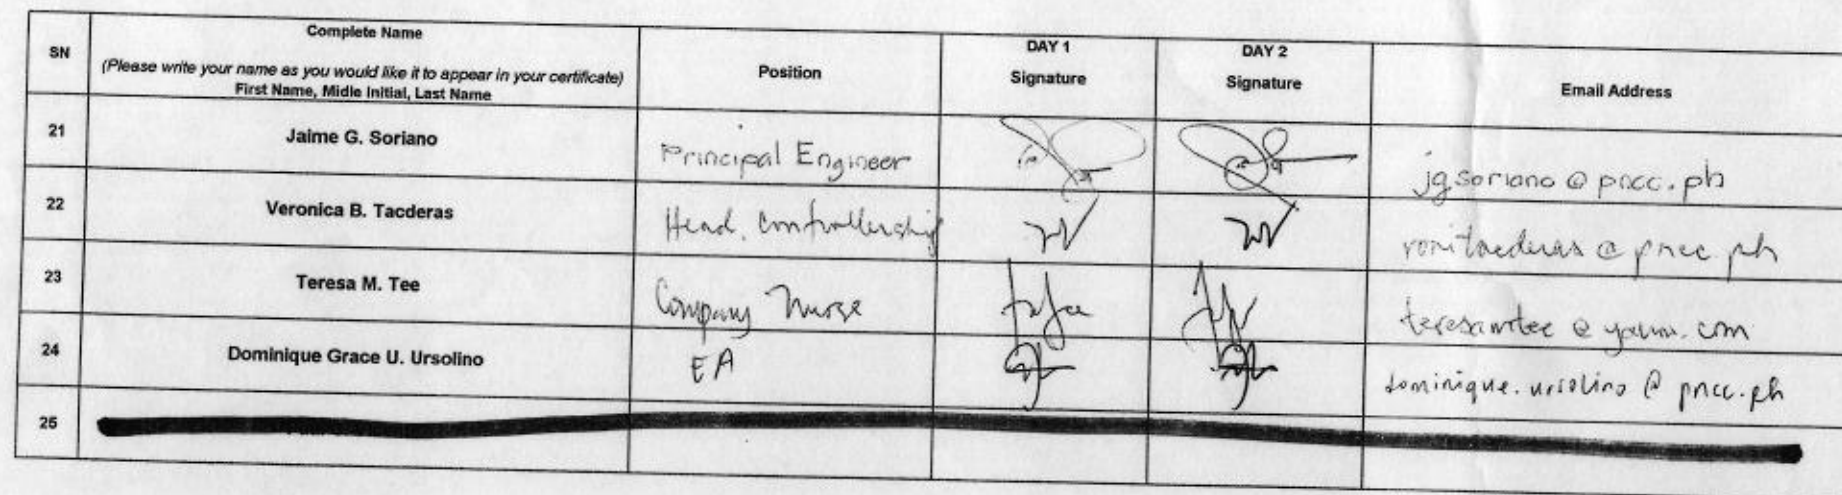 SN
Complete Name
(Please write your name as you would like it to appear in your certificate)
First Name, Midle Initial, Last Name
Position
DAY 1
Signature
DAY 2
Signature
Email Address
21
Jaime G. Soriano
Principal Engineer
jgsoriano@pncc.ph
22
Veronica B. Tacderas
Head, Controllership
ronitacderas@pncc.ph
23
Teresa M. Tee
Company Nurse
teresamtee@yahoo.com
24
Dominique Grace U. Ursolino
EA
dominique.ursolino@pncc.ph
25